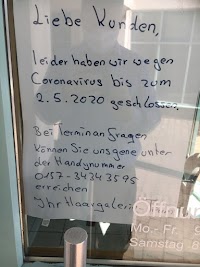 Liebe Kunden,
leider haben wir wegen
Coronavirus bis zum
2.5.2020 geschlossen,
Bei Terminanfragen
können Sie uns gene unter
der Handynummer
0157-34243595
erreichen
Ihr Haargalerie
Öffnu
Mo.- Fr.
Samstag 8